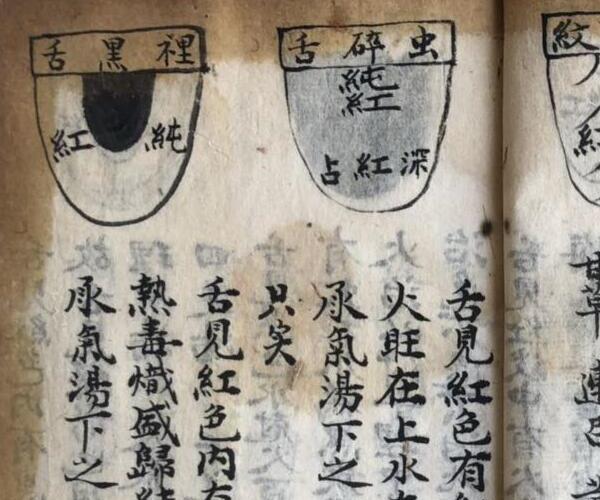 紋
紅
甘草 連
虫碎舌
純紅
深紅占
舌見紅色有
火旺在上水
承氣湯下之
只实
裡黑舌
純紅
舌見紅色内有
熱毒熾盛歸
承氣湯下之